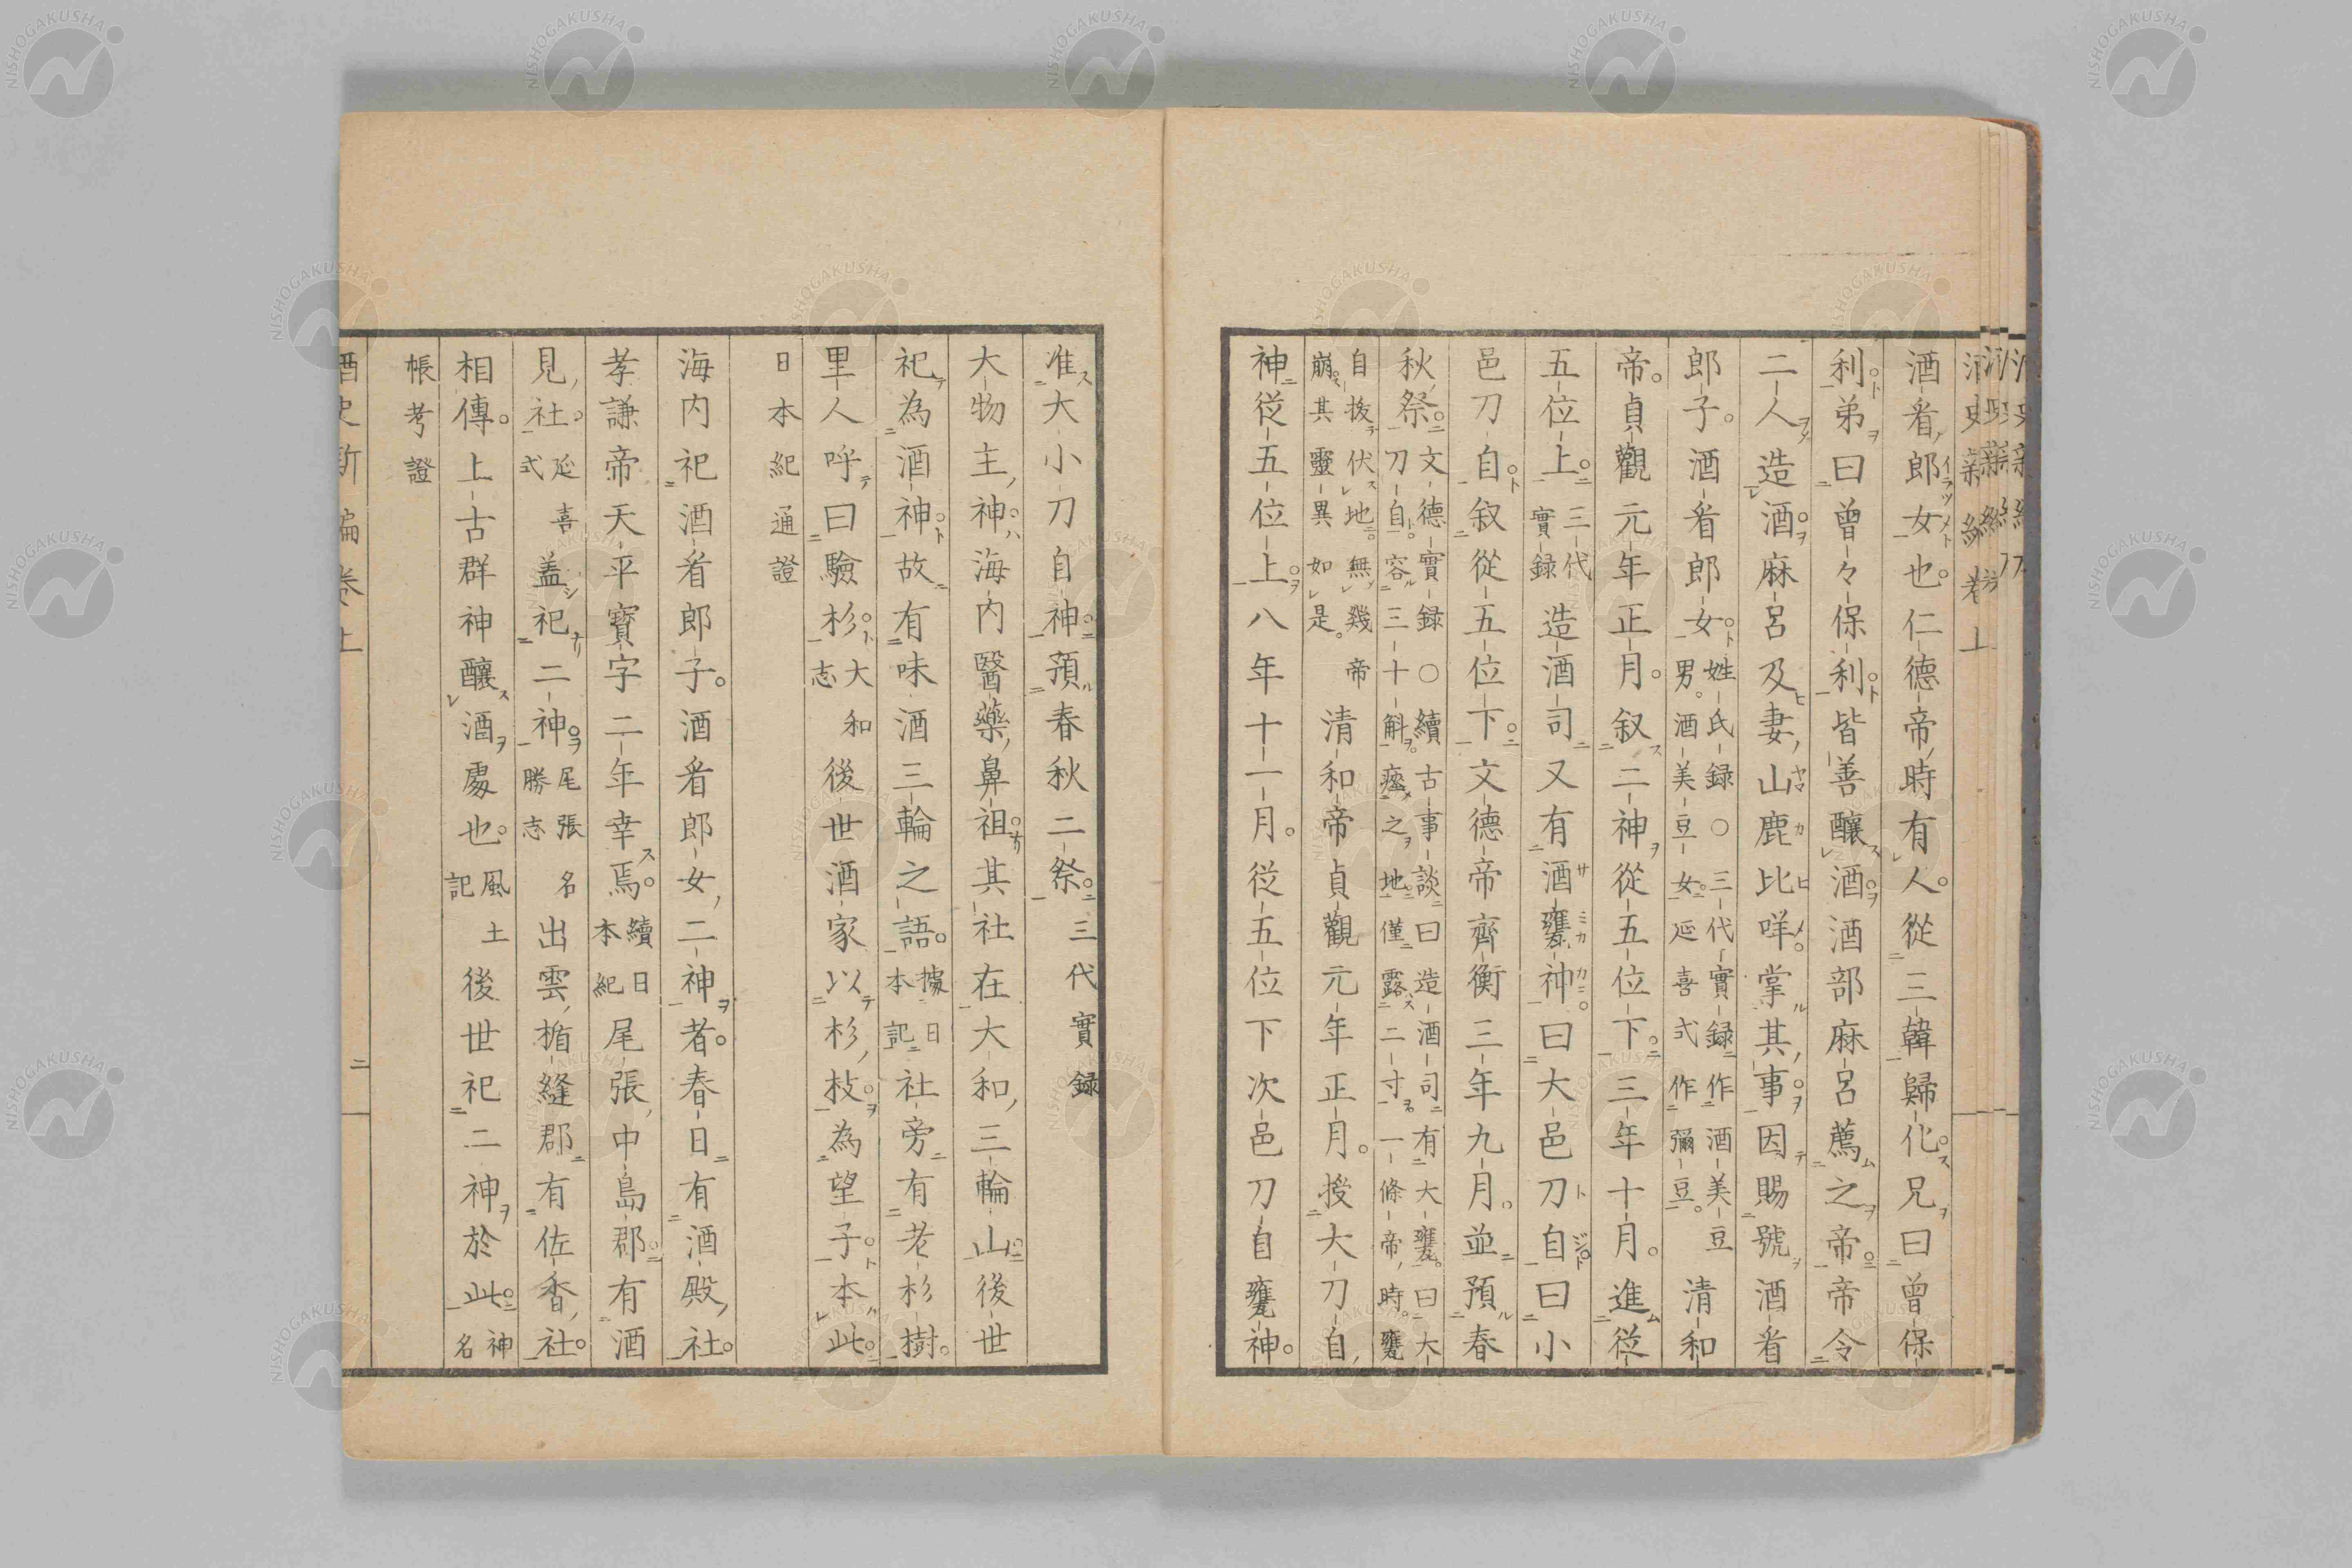 酒史新編卷上
酒看郎女也。仁德帝時有人。從三韓歸化。兄曰曾保
利弟曰曾々保利皆善釀酒。酒部麻呂薦之帝。帝令
二人造酒。麻呂及妻山鹿比咩。掌其事。因賜號酒看
郎子。酒看郎女。姓氏録○三代實録作酒美豆
男。酒美豆女。延喜式作彌豆。清和
帝。貞觀元年正月。叙二神從五位下。三年十月。進從
五位上。三代
實録造酒司又有酒甕神。曰大邑刀自曰小
邑刀自。叙從五位下。文德帝齊衡三年九月。並預春
秋祭。文德實録○續古事談曰造酒司有大甕。曰大
刀自。容三十斛。瘞之地。僅露二寸。一條帝時。甕
自拔伏地。無幾帝
崩。其靈異如是。清和帝貞觀元年正月。授大刀自
神從五位上。八年十一月。從五位下次邑刀自甕神。
准大小刀自神。預春秋二祭。三代實録
大物主神。海内醫藥鼻祖。其社在大和三輪山。後世
祀為酒神。故有味酒三輪之語。據日
本記社旁有老杉樹。
里人呼曰驗杉。大和
志後世酒家以杉枝。為望子。本此。
日本紀通證
海内祀酒看郎子。酒看郎女二神者。春日有酒殿社。
孝謙帝天平寶字二年幸焉。續日
本紀尾張中島郡。有酒
見社。延喜
式盖祀二神。尾張名
勝志出雲楯縫郡有佐香社。
相傳。上古群神釀酒處也。風土
記後世祀二神於此。神名
帳考證
酒史新編卷上
二
NISHOGAKUSHA